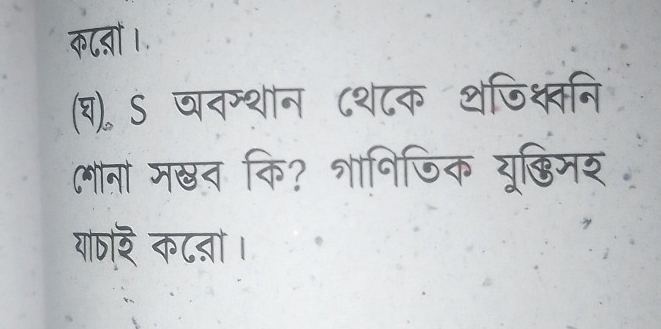 করো।
(ঘ). S অবস্থান থেকে প্রতিধ্বনি
শোনা সম্ভব কি? গাণিতিক যুক্তিসহ
যাচাই করো।